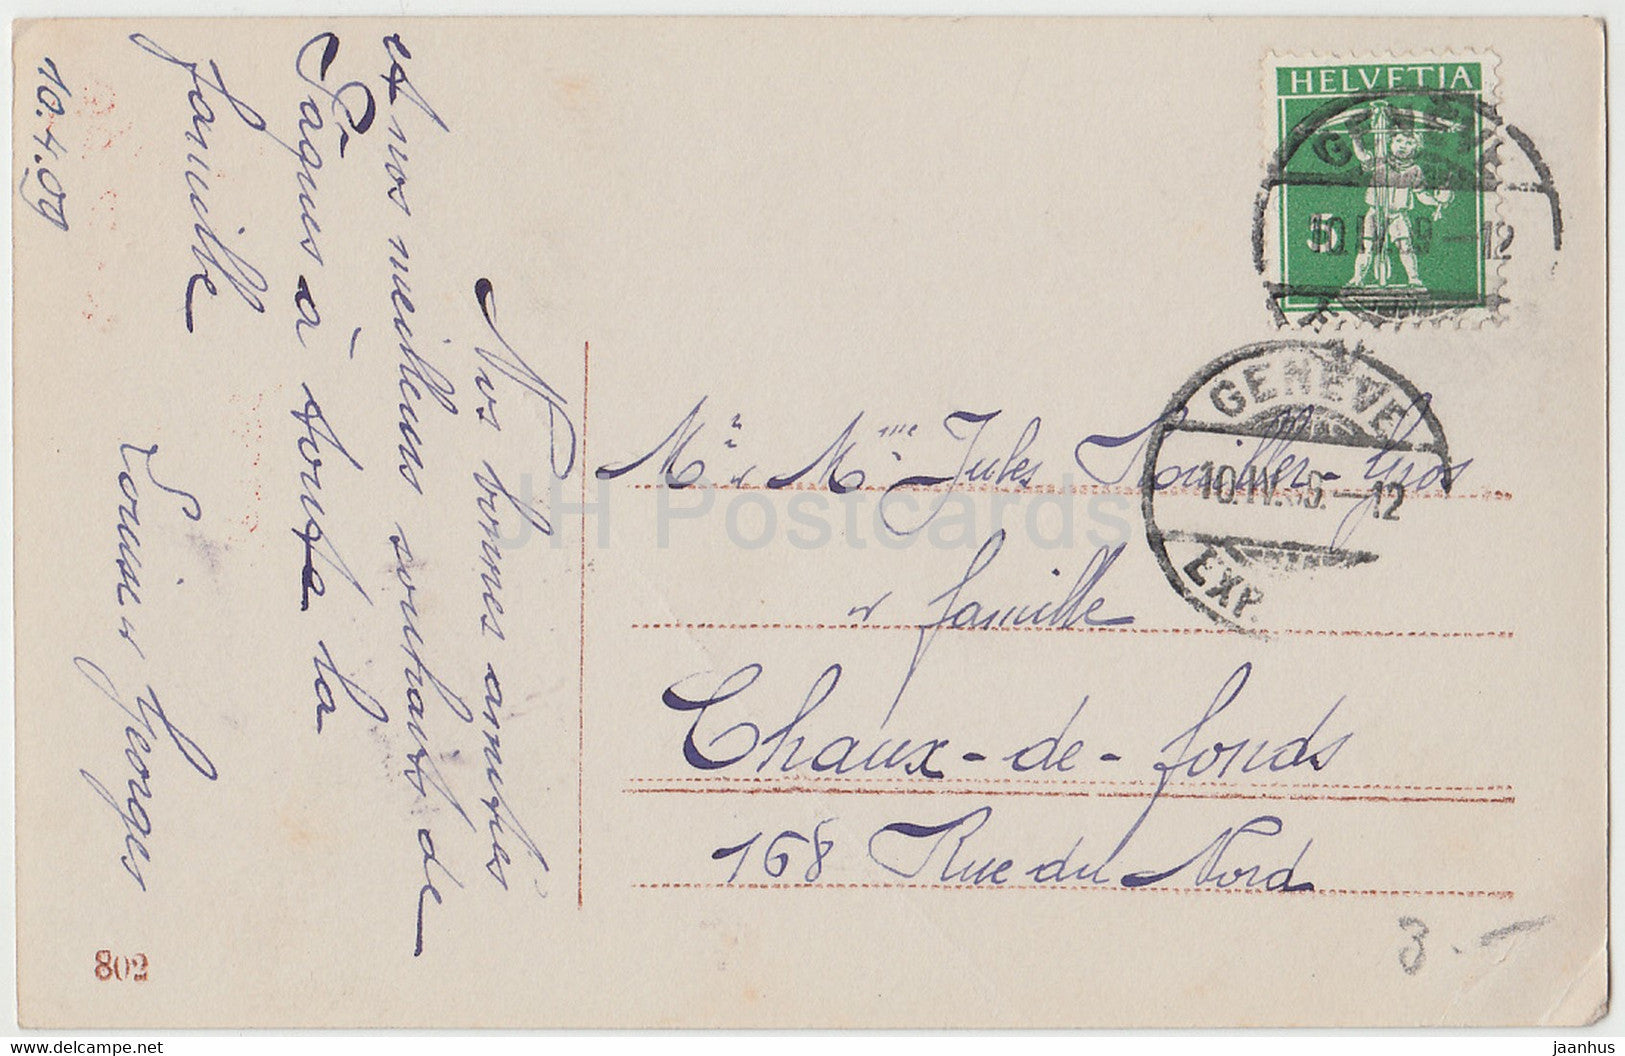 Nos bonnes amitiés
et nos meilleurs souhaits de
Pâques à toute la
famille
Louise et Georges
10.4.09
802
HELVETIA
5
GENÈVE
10.IV.09.-12
GENÈVE
10.IV.09.-12
EXP.
Mr et Mme Jules
et famille
Chaux-de-fonds
168 Rue du Nord
3.-
JH Postcards
delcampe.net
jaanhus